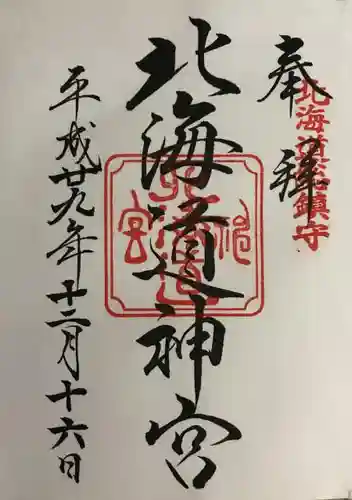 奉拝
北海道総鎮守
北海道神宮
北海道神宮
平成廿九年十二月十六日